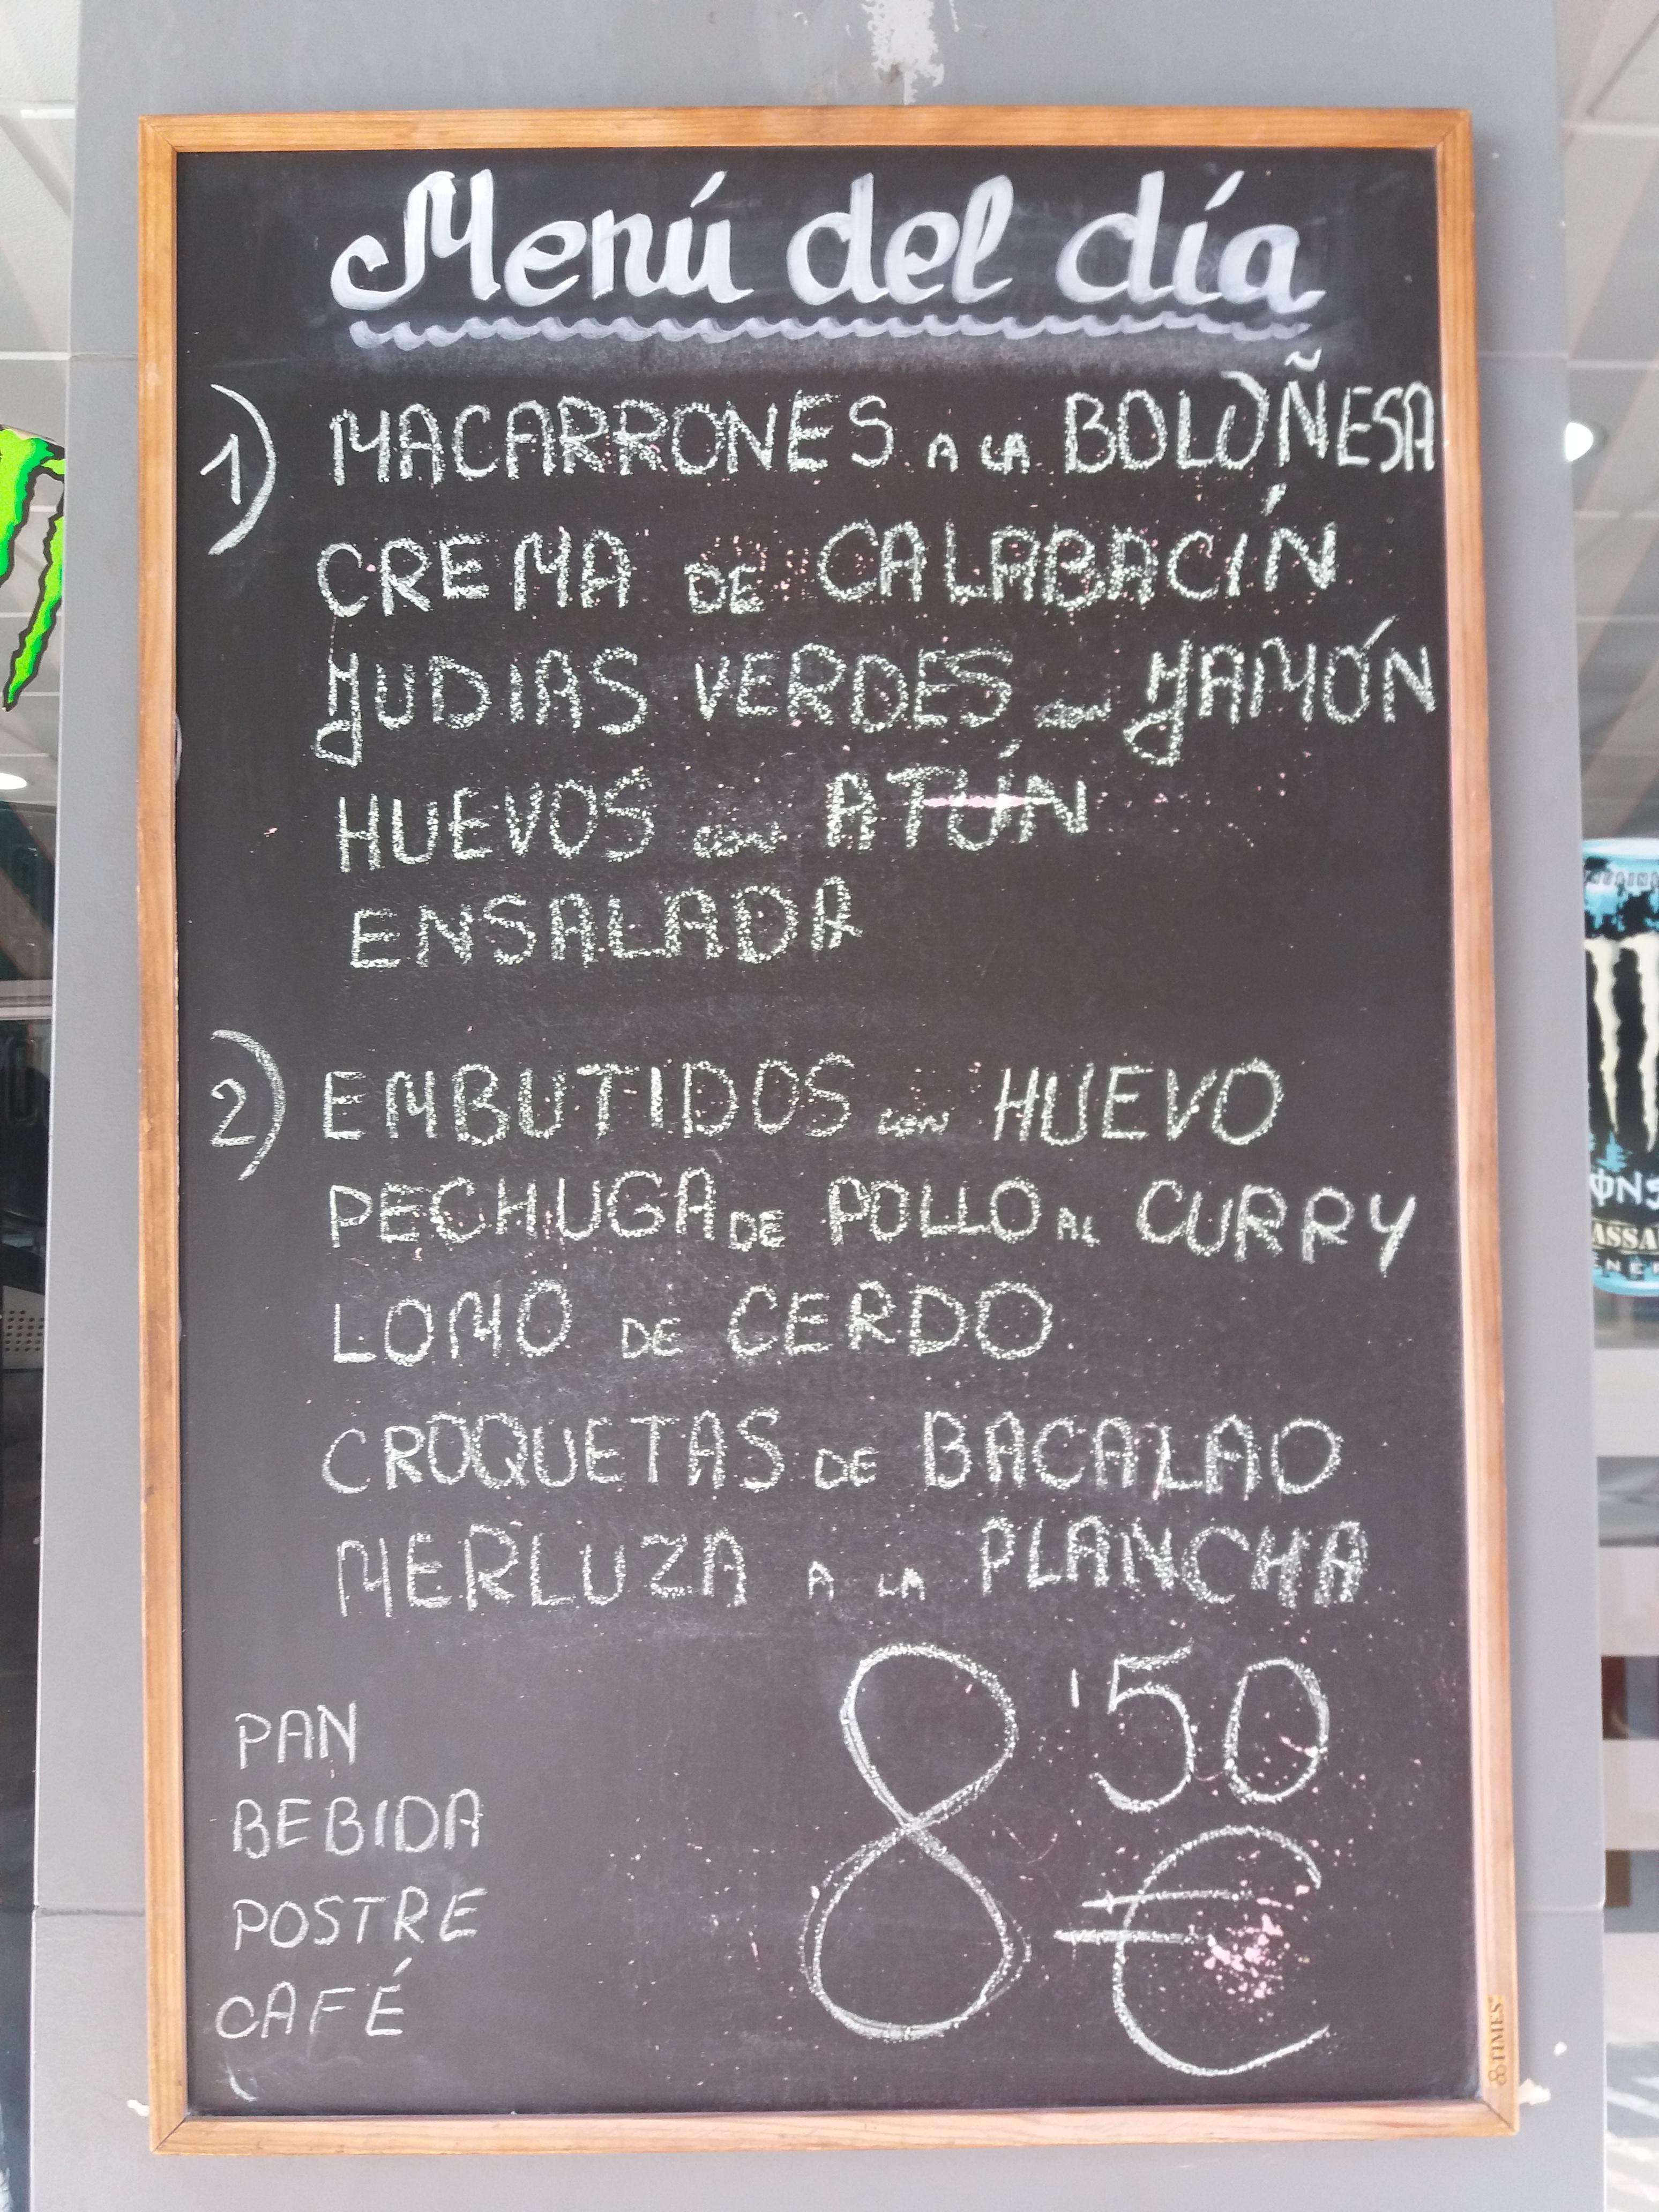 Menú del día
1) MACARRONES A LA BOLOÑESA
CREMA DE CALABACÍN
JUDIAS VERDES con JAMÓN
HUEVOS con ATÚN
ENSALADA
2) EMBUTIDOS con HUEVO
PECHUGA DE POLLO AL CURRY
LOMO DE CERDO
CROQUETAS DE BACALAO
MERLUZA A LA PLANCHA
PAN
BEBIDA
POSTRE
CAFÉ
8'50
€
TIMES